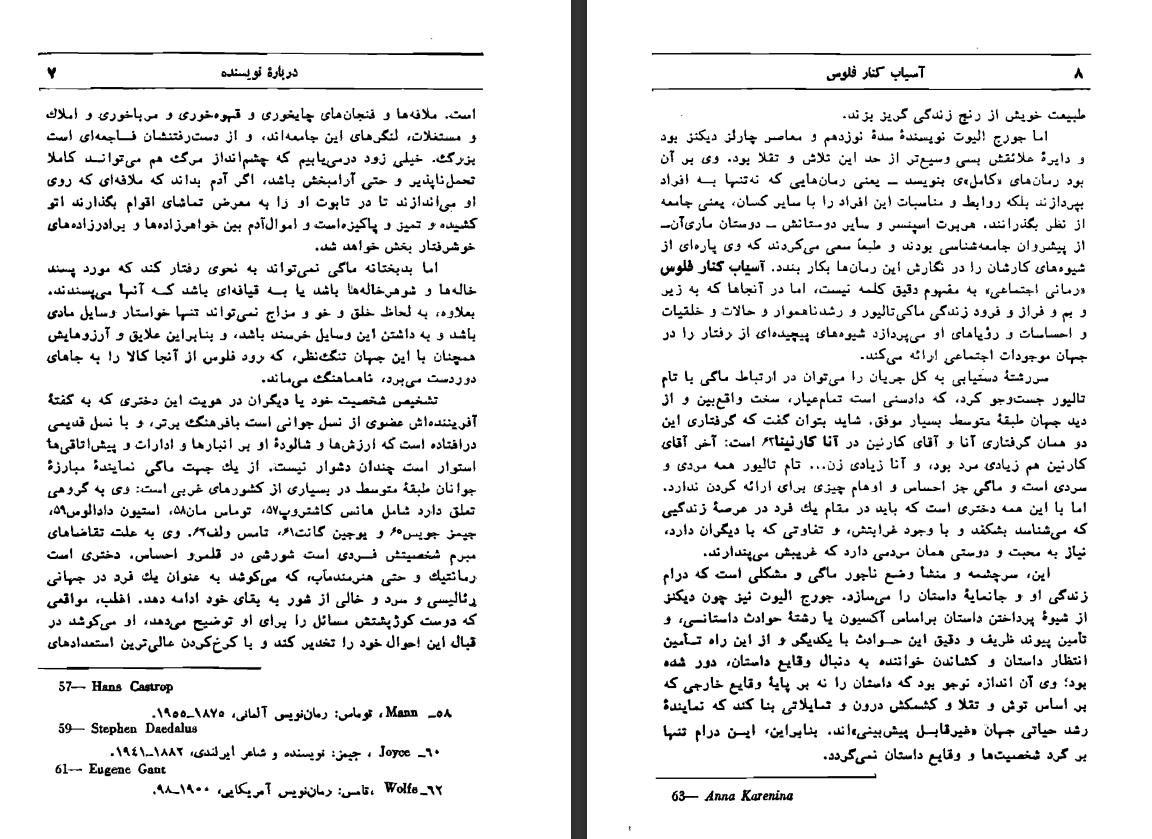 دربارهٔ نویسنده
۷
است. ملافه‌ها و فنجان‌های چایخوری و قهوه‌خوری و مرباخوری و املاك
و مستغلات، لنگرهای این جامعه‌اند، و از دست‌رفتنشان فـاجعه‌ای است
بزرگ. خیلی زود درمی‌یابیم که چشم‌انداز مرگ هم می‌توانـد کاملا
تحمل‌ناپذیر و حتی آرامبخش باشد، اگر آدم بداند که ملافه‌ای که روی
او می‌اندازند تا در تابوت او را به معرض تماشای اقوام بگذارند اتو
کشیده و تمیز و پاکیزه‌است و اموال‌آدم بین خواهرزاده‌ها و برادرزاده‌های
خوشرفتار بخش خواهد شد.
اما بدبختانه ماگی نمی‌تواند به نحوی رفتار کند که مورد پسند
خاله‌ها و شوهرخاله‌ها باشد یا بـه قیافه‌ای باشد کـه آنها می‌پسندند.
بعلاوه، به لحاظ خلق و خو و مزاج نمی‌تواند تنها خواستار وسایل مادی
باشد و به داشتن این وسایل خرسند باشد، و بنابراین علایق و آرزوهایش
همچنان با این جهان تنگ‌نظر، که رود فلوس از آنجا کالا را به جاهای
دوردست می‌برد، ناهماهنگ می‌ماند.
تشخیص شخصیت خود یا دیگران در هویت این دختری که به گفتهٔ
آفریننده‌اش عضوی از نسل جوانی است بافرهنگ برتر، و با نسل قدیمی
درافتاده است که ارزش‌ها و شالودهٔ او بر انبارها و ادارات و پیش‌اتاقی‌ها
استوار است چندان دشوار نیست. از یك جهت ماگی نمایندهٔ مبارزهٔ
جوانان طبقهٔ متوسط در بسیاری از کشورهای غربی است: وی به گروهی
تعلق دارد شامل هانس کاشتروپ۵۷، توماس مان۵۸، استیون دادالوس۵۹،
جیمز جویس۶۰ و یوجین گانت۶۱، تامس ولف۶۲. وی به علت تقاضاهای
مبرم شخصیتش فـردی است شورشی در قلمرو احساس. دختری است
رمانتیك و حتی هنرمندمآب، که می‌کوشد به عنوان یك فرد در جهانی
رئالیسی و سرد و خالی از شور به بقای خود ادامه دهد. اغلب، مواقعی
که دوست کوژپشتش مسائل را برای او توضیح می‌دهد، او می‌کوشد در
قبال این احوال خود را تخدیر کند و با کرخ‌کردن عالی‌ترین استعدادهای
57— Hans Castrop
۵۸ـ Mann، توماس: رمان‌نویس آلمانی، ۱۸۷۵ـ۱۹۵۵.
59— Stephen Daedalus
۶۰ـ Joyce ، جیمز: نویسنده و شاعر ایرلندی، ۱۸۸۲ـ۱۹۴۱.
61— Eugene Gant
۶۲ـ Wolfe ،تامس: رمان‌نویس آمریکایی، ۱۹۰۰ـ۹۸.
۸
آسیاب کنار فلوس
طبیعت خویش از رنج زندگی گریز بزند.
اما جورج الیوت نویسندهٔ سدهٔ نوزدهم و معاصر چارلز دیکنز بود
و دایرهٔ علائقش بسی وسیع‌تر از حد این تلاش و تقلا بود. وی بر آن
بود رمان‌های «کامل»ی بنویسد ـ یعنی رمان‌هایی که نه‌تنها بـه افراد
بپردازند بلکه روابط و مناسبات این افراد را با سایر کسان، یعنی جامعه
از نظر بگذرانند. هربرت اسپنسر و سایر دوستانش ـ دوستان ماری‌آن‌ـ
از پیشروان جامعه‌شناسی بودند و طبعا سعی می‌کردند که وی پاره‌ای از
شیوه‌های کارشان را در نگارش این رمان‌ها بکار بندد. آسیاب کنار فلوس
«رمانی اجتماعی» به مفهوم دقیق کلمه نیست، اما در آنجاها که به زیر
و بم و فراز و فرود زندگی ماگی‌تالیور و رشدناهموار و حالات و خلقیات
و احساسات و رؤیاهای او می‌پردازد شیوه‌های پیچیده‌ای از رفتار را در
جهان موجودات اجتماعی ارائه می‌کند.
سررشتهٔ دستیابی به کل جریان را می‌توان در ارتباط ماگی با تام
تالیور جست‌وجو کرد، که دادستی است تمام‌عیار، سخت واقع‌بین و از
دید جهان طبقهٔ متوسط بسیار موفق. شاید بتوان گفت که گرفتاری این
دو همان گرفتاری آنا و آقای کارنین در آنا کارنینا۶۳ است: آخر آقای
کارنین هم زیادی مرد بود، و آنا زیادی زن... تام تالیور همه مردی و
سردی است و ماگی جز احساس و اوهام چیزی برای ارائه کردن ندارد.
اما با این همه دختری است که باید در مقام یك فرد در عرصهٔ زندگیی
که می‌شناسد بشکفد و با وجود غرابتش، و تفاوتی که با دیگران دارد،
نیاز به محبت و دوستی همان مردمی دارد که غریبش می‌پندارند.
این، سرچشمه و منشأ وضع ناجور ماگی و مشکلی است که درام
زندگی او و جانمایهٔ داستان را می‌سازد. جورج الیوت نیز چون دیکنز
از شیوهٔ پرداختن داستان براساس آکسیون یا رشتهٔ حوادث داستانـی، و
تأمین پیوند ظریف و دقیق این حـوادث با یکدیگر و از این راه تـأمین
انتظار داستان و کشاندن خواننده به دنبال وقایع داستان، دور شده
بود؛ وی آن اندازه نوجو بود که داستان را نه بر پایهٔ وقایع خارجی که
بر اساس توش و تقلا و کشمکش درون و تمایلاتی بنا کند که نمایندهٔ
رشد حیاتی جهان «غیرقابـل پیش‌بینی»اند. بنابراین، ایـن درام تنها
بر گرد شخصیت‌ها و وقایع داستان نمی‌گردد.
63— Anna Karenina